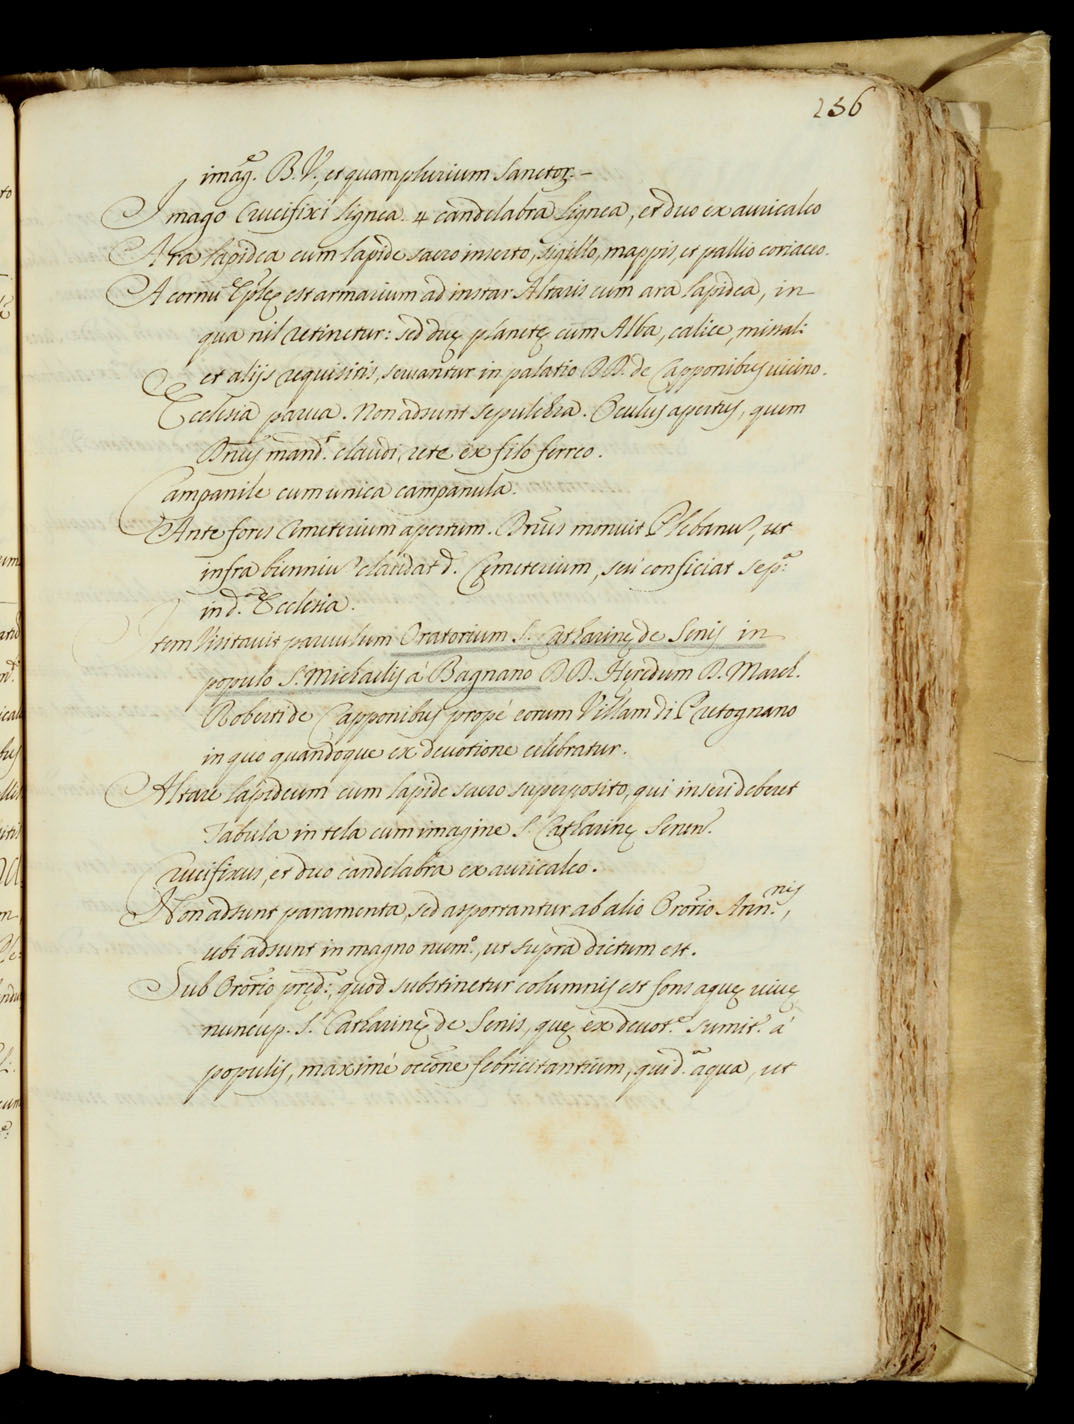 236
imag.e B. V., et quamplurium Sanctor. -
Imago Crucifixi lignea. 4 candelabra lignea, et duo ex auricalco
Ara lapidea cum lapide sacro inserto, sigillo, mappis, et pallio coriaceo.
A cornu Eplę est armarium ad instar Altaris cum ara lapidea, in
qua nil retinetur: sed duę planetę cum Alba, calice, missali
et alijs requisitis, servantur in palatio DD. de Capponibus vicino.
Ecclesia parva. Non adsunt sepulchra. Oculus apertus, quem
Dnus mand.t claudi, rete ex filo ferreo.
Campanile cum unica campanula.
Ante fores Cimeterium apertum. Dnus monuit Plebanũ, ut
infra bienniũ claudat d. Cemeterium, seu conficiat sep.a
in d.a Ecclesia.
Item Visitavit parvulum Oratorium S. Catharinę de Senis in
populo S. Michaelis à Bagnano DD. Hęredum D. March.
Roberti de Capponibus propè eorum Villam di Pretognano
in quo quandoque ex devotione celebratur.
Altare lapideum cum lapide sacro superposito, qui inseri deberet
Tabula in tela cum imagine S. Catharinę Senen.
Crucifixus, et duo candelabra ex auricalco.
Non adsunt paramenta, sed asportantur ab alio Orõrio Ann.nis,
ubi adsunt in magno num.o, ut supra dictum est.
Sub Orõrio pręd.o, quod substinetur columnis est fons aquę vivę
nuncup. S. Catharinę de Senis, quę ex devot.e sumit.r à
populis, maximè occõne febricitantium, qui d.a aqua, ut